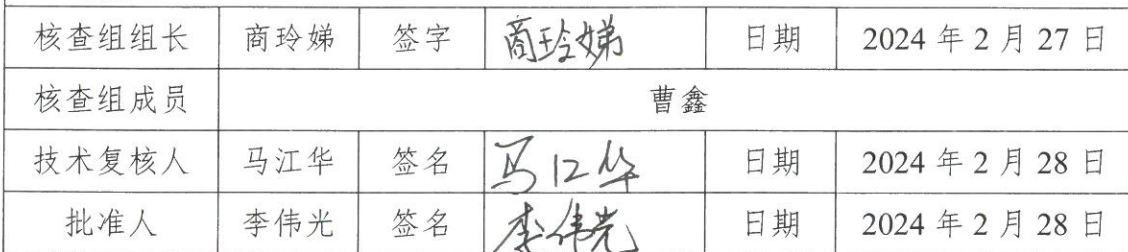 核查组组长 商玲娣 签字 商玲娣 日期 2024 年 2 月 27 日
核查组成员 曹鑫
技术复核人 马江华 签名 马江华 日期 2024 年 2 月 28 日
批准人 李伟光 签名 李伟光 日期 2024 年 2 月 28 日